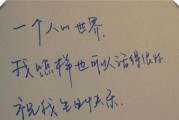 一个人的世界.
我怎样也可以活得很好.
祝我生日快乐.